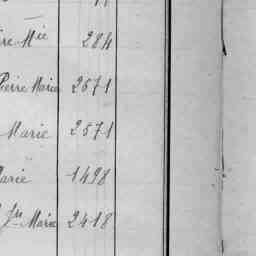 re Mie 284
Pierre Marie 2671
Marie 2571
Marie 1498
Jn Marie 2418